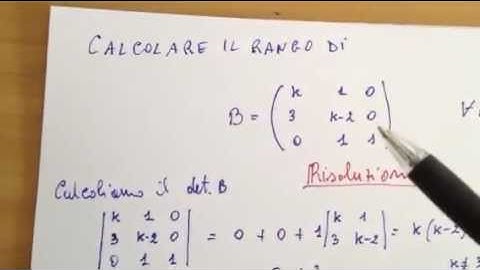 CALCOLARE IL RANGO DI
k 1 0
B = ( 3 k-2 0 ) ∀
0 1 1
Risoluzion
Calcoliamo il det. B
| k 1 0 |
| 3 k-2 0 | = 0 + 0 + 1 | k 1 | = k (k-2)
| 0 1 1 | | 3 k-2 |
k≠3